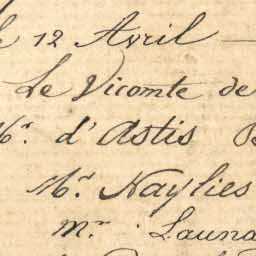 le 12 Avril —
Le Vicomte de
Mr. d'Astis
Mr. Naylies
mr. Launa